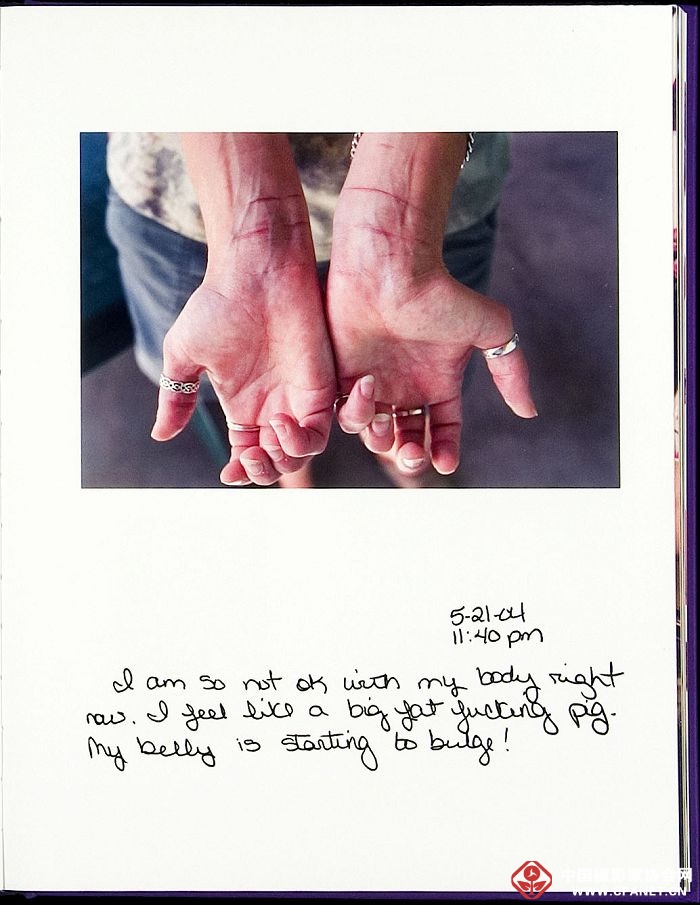 5-21-04
11:40 pm
I am so not ok with my body right
now. I feel like a big fat fucking pig.
My belly is starting to bulge!
中国摄影家协会网
WWW.CPANET.CN